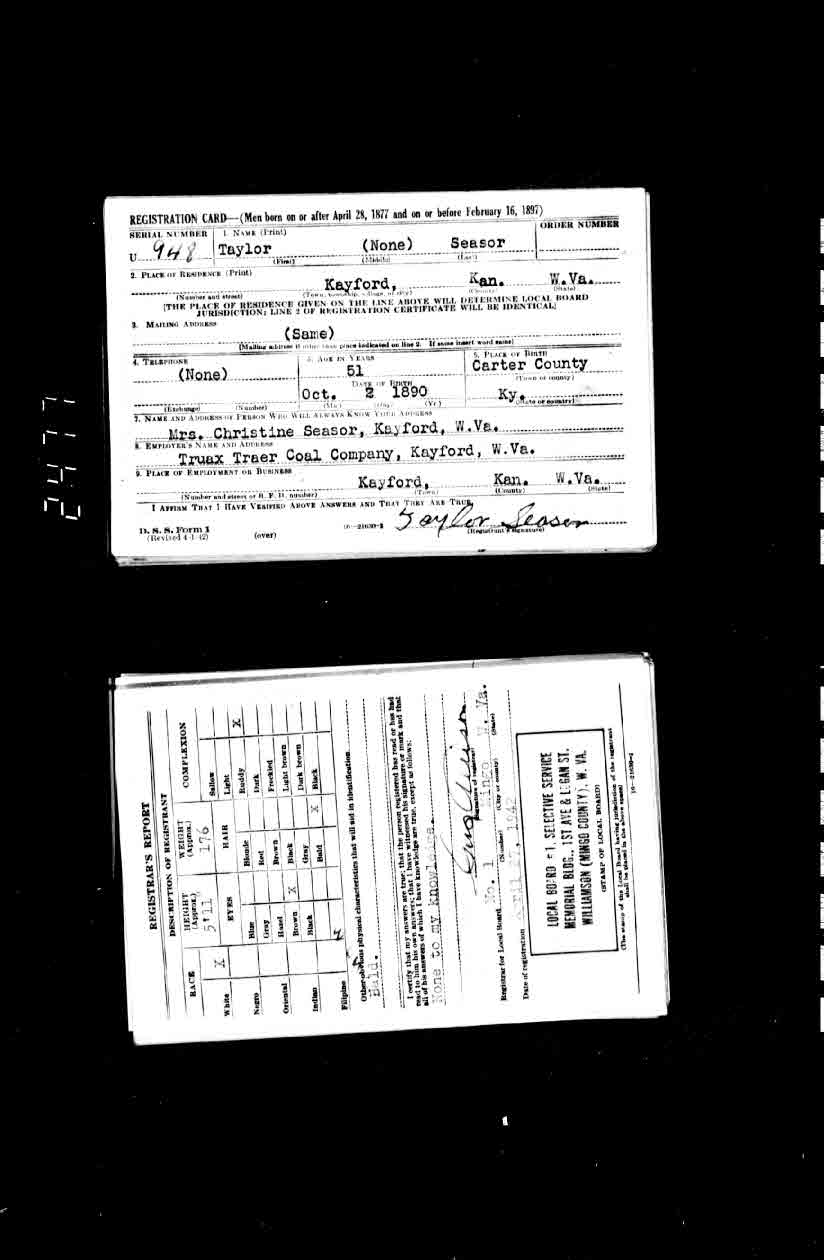 REGISTRATION CARD—(Men born on or after April 28, 1877 and on or before February 16, 1897)
SERIAL NUMBER 1. NAME (Print) ORDER NUMBER
U 948 Taylor (None) Seasor
(First) (Middle) (Last)
2. PLACE OF RESIDENCE (Print)
Kayford, Kan. W.Va.
(Number and street) (Town, township, village, or city) (County) (State)
[THE PLACE OF RESIDENCE GIVEN ON THE LINE ABOVE WILL DETERMINE LOCAL BOARD
JURISDICTION; LINE 2 OF REGISTRATION CERTIFICATE WILL BE IDENTICAL]
3. MAILING ADDRESS
(Same)
[Mailing address if other than place indicated on line 2. If same insert word same]
4. TELEPHONE 5. AGE IN YEARS 6. PLACE OF BIRTH
(None) 51 Carter County
DATE OF BIRTH (Town or county)
Oct. 2 1890 Ky.
(Exchange) (Number) (Mo.) (Day) (Yr.) (State or country)
7. NAME AND ADDRESS OF PERSON WHO WILL ALWAYS KNOW YOUR ADDRESS
Mrs. Christine Seasor, Kayford, W.Va.
8. EMPLOYER'S NAME AND ADDRESS
Truax Traer Coal Company, Kayford, W.Va.
9. PLACE OF EMPLOYMENT OR BUSINESS
Kayford, Kan. W.Va.
(Number and street or R. F. D. number) (Town) (County) (State)
I AFFIRM THAT I HAVE VERIFIED ABOVE ANSWERS AND THAT THEY ARE TRUE.
Taylor Seasor
D. S. S. Form 1 16—21630-2 (Registrant's signature)
(Revised 4-1-42) (over)
2477
REGISTRAR'S REPORT
DESCRIPTION OF REGISTRANT
RACE HEIGHT (Approx.) WEIGHT (Approx.) COMPLEXION
5'11 176
White X EYES HAIR Sallow
Light
Negro Blue Blonde Ruddy X
Gray Red Dark
Oriental Hazel Brown Freckled
Brown X Black Light brown
Indian Black Gray Dark brown
Bald X Black
Filipino
Other obvious physical characteristics that will aid in identification
Bald.
I certify that my answers are true; that the person registered has read or has had
read to him his own answers; that I have witnessed his signature or mark and that
all of his answers of which I have knowledge are true, except as follows:
None to my knowledge.
(Signature of registrar)
Registrar for Local Board No. 1 Mingo W. Va.
(Number) (City or county) (State)
Date of registration April 27, 1942
LOCAL BOARD #1, SELECTIVE SERVICE
MEMORIAL BLDG., 1ST AVE & LOGAN ST.
WILLIAMSON (MINGO COUNTY), W. VA.
(STAMP OF LOCAL BOARD)
(The stamp of the Local Board having jurisdiction of the registrant
shall be placed in the above space)
16—21630-2